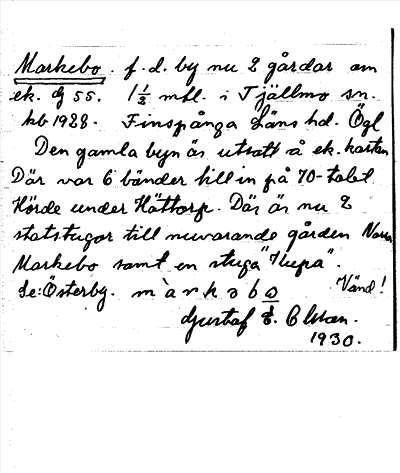 Markebo. f.d. by nu 2 gårdar om
ek. dj 55. 1 1/2 mtl. i Tjällmo sn.
kb 1928. Finspånga Läns hd. Ögl
Den gamla byn är utsatt å ek. kartan
Där var 6 bönder till in på 70-talet
Hörde under Hättorp. Där är nu 2
statstugor till nuvarande gården Norra
Markebo samt en stuga "Hupa".
Se: Österby. màrkəbo Vänd!
Gustaf E. Olsson.
1930.